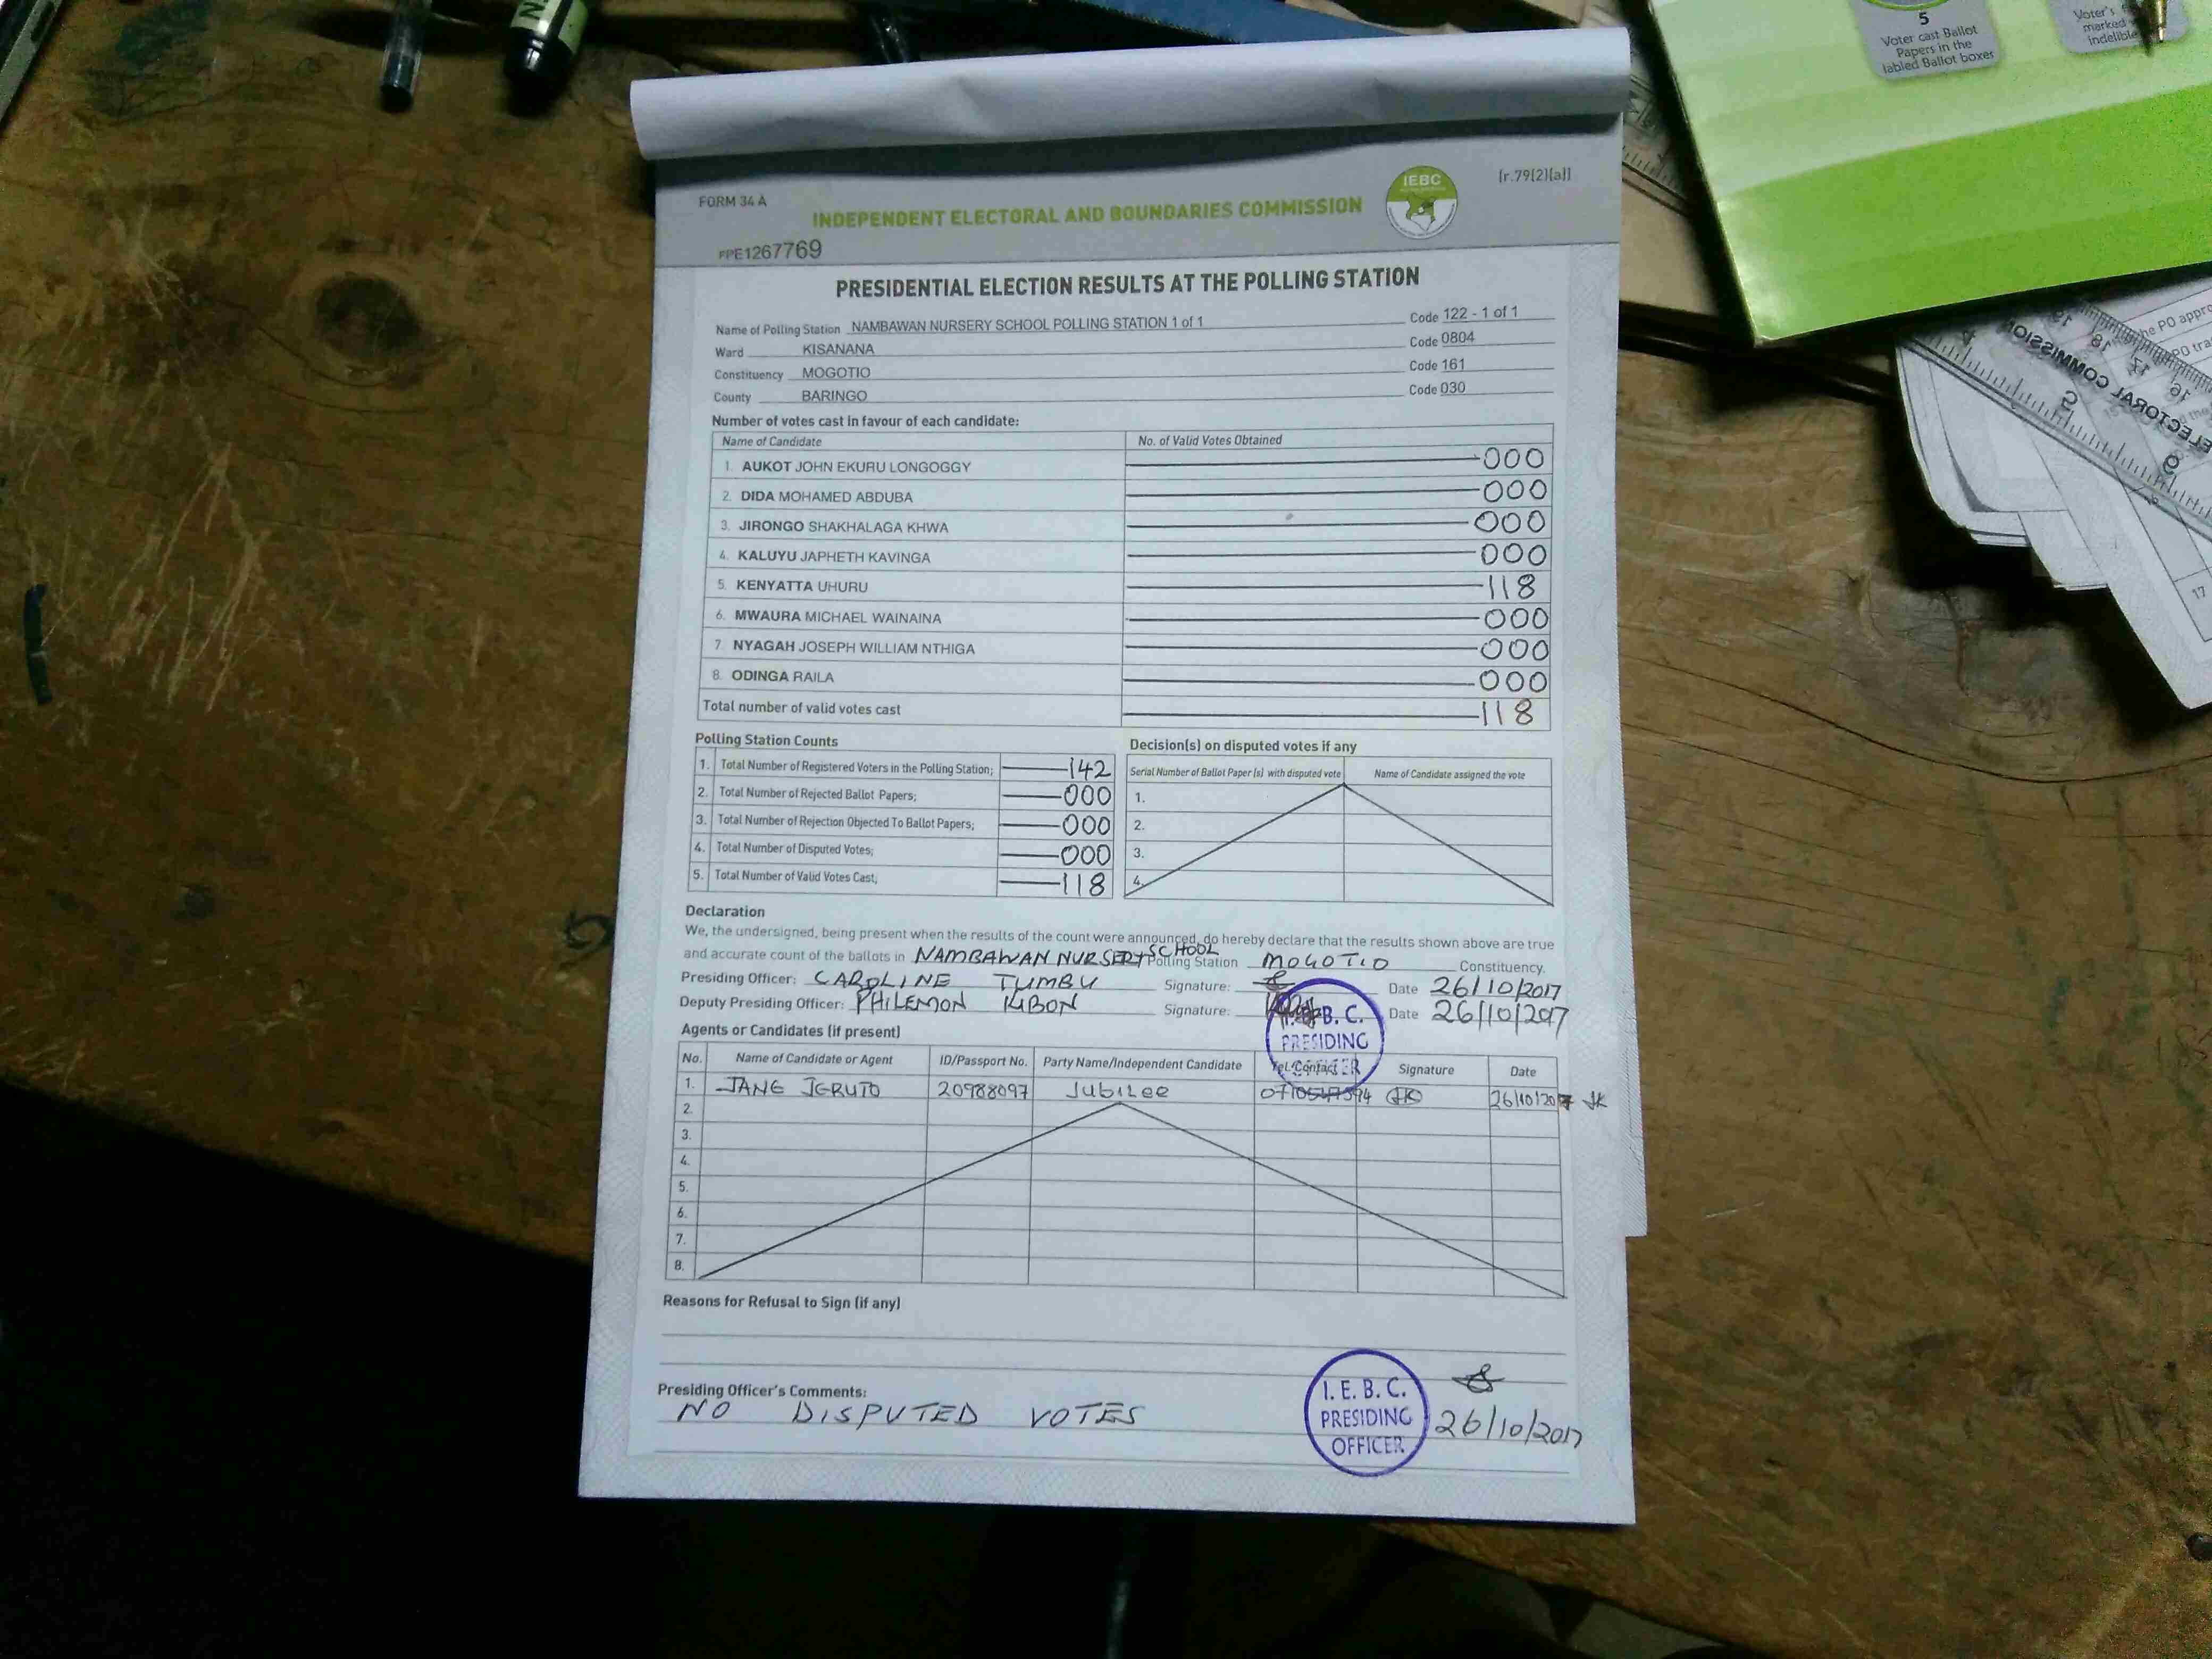 5
Voter cast Ballot
Papers in the
labled Ballot boxes
Voter's
marked
indelible
FORM 34 A
[r.79(2)(a)]
IEBC
INDEPENDENT ELECTORAL AND BOUNDARIES COMMISSION
PPE1267769
PRESIDENTIAL ELECTION RESULTS AT THE POLLING STATION
Name of Polling Station NAMBAWAN NURSERY SCHOOL POLLING STATION 1 of 1 Code 122 - 1 of 1
Ward KISANANA Code 0804
Constituency MOGOTIO Code 161
County BARINGO Code 030
Number of votes cast in favour of each candidate:
Name of Candidate No. of Valid Votes Obtained
1. AUKOT JOHN EKURU LONGOGGY 000
2. DIDA MOHAMED ABDUBA 000
3. JIRONGO SHAKHALAGA KHWA 000
4. KALUYU JAPHETH KAVINGA 000
5. KENYATTA UHURU 118
6. MWAURA MICHAEL WAINAINA 000
7. NYAGAH JOSEPH WILLIAM NTHIGA 000
8. ODINGA RAILA 000
Total number of valid votes cast 118
Polling Station Counts
1. Total Number of Registered Voters in the Polling Station; 142
2. Total Number of Rejected Ballot Papers; 000
3. Total Number of Rejection Objected To Ballot Papers; 000
4. Total Number of Disputed Votes; 000
5. Total Number of Valid Votes Cast; 118
Decision(s) on disputed votes if any
Serial Number of Ballot Paper (s) with disputed vote Name of Candidate assigned the vote
1.
2.
3.
4.
Declaration
We, the undersigned, being present when the results of the count were announced, do hereby declare that the results shown above are true
and accurate count of the ballots in NAMBAWAN NURSERY SCHOOL Polling Station MOGOTIO Constituency.
Presiding Officer: CAROLINE TUMBU Signature: Date 26/10/2017
Deputy Presiding Officer: PHILEMON KIBON Signature: Date 26/10/2017
I.E.B.C.
PRESIDING
OFFICER
Agents or Candidates (if present)
No. Name of Candidate or Agent ID/Passport No. Party Name/Independent Candidate Tel. Contact Signature Date
1. JANE JERUTO 20988097 Jubilee JK 26/10/2017 JK
2.
3.
4.
5.
6.
7.
8.
Reasons for Refusal to Sign (if any)
Presiding Officer's Comments:
NO DISPUTED VOTES
I. E. B. C.
PRESIDING
OFFICER
26/10/2017
the PO appro
PO tra
ELECTORAL COMMISSION
19
18
17
16
17